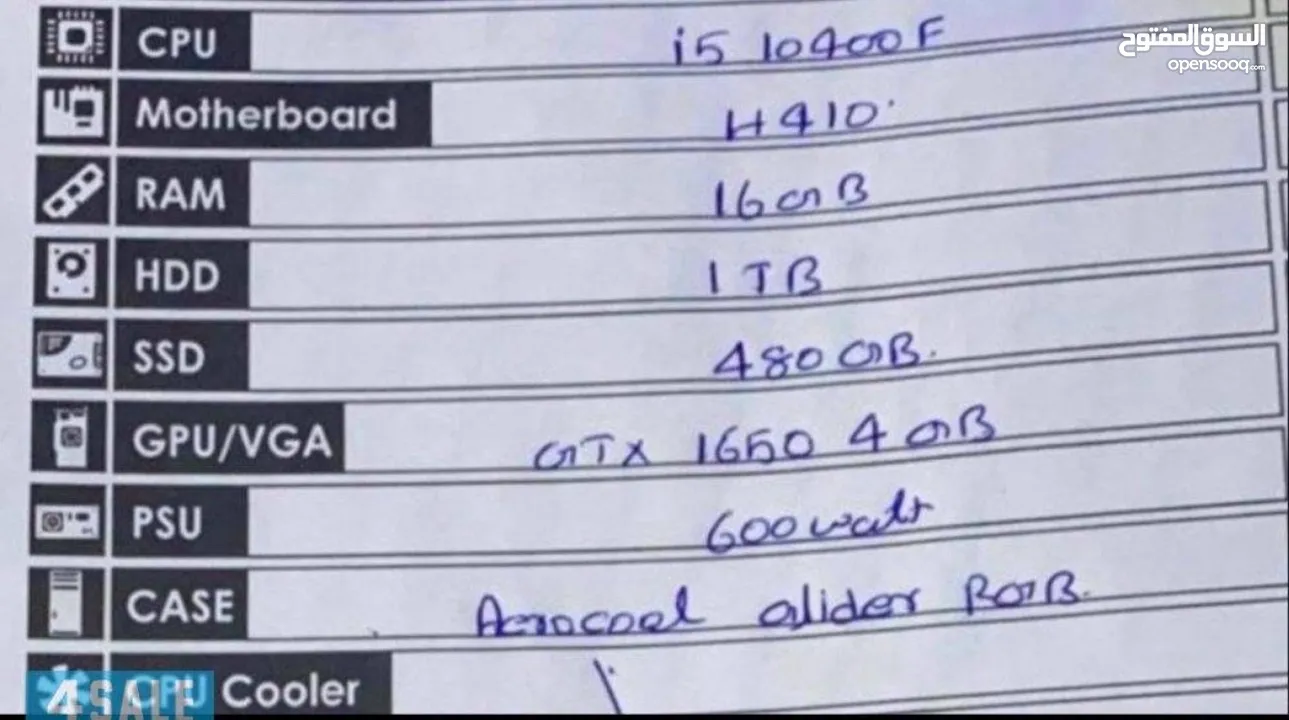 السوق المفتوح
opensooq.com
CPU i5 10400F
Motherboard H410
RAM 16GB
HDD 1TB
SSD 480GB.
GPU/VGA GTX 1650 4GB
PSU 600watt
CASE Aerocool Glider RGB.
CPU Cooler
4SALE